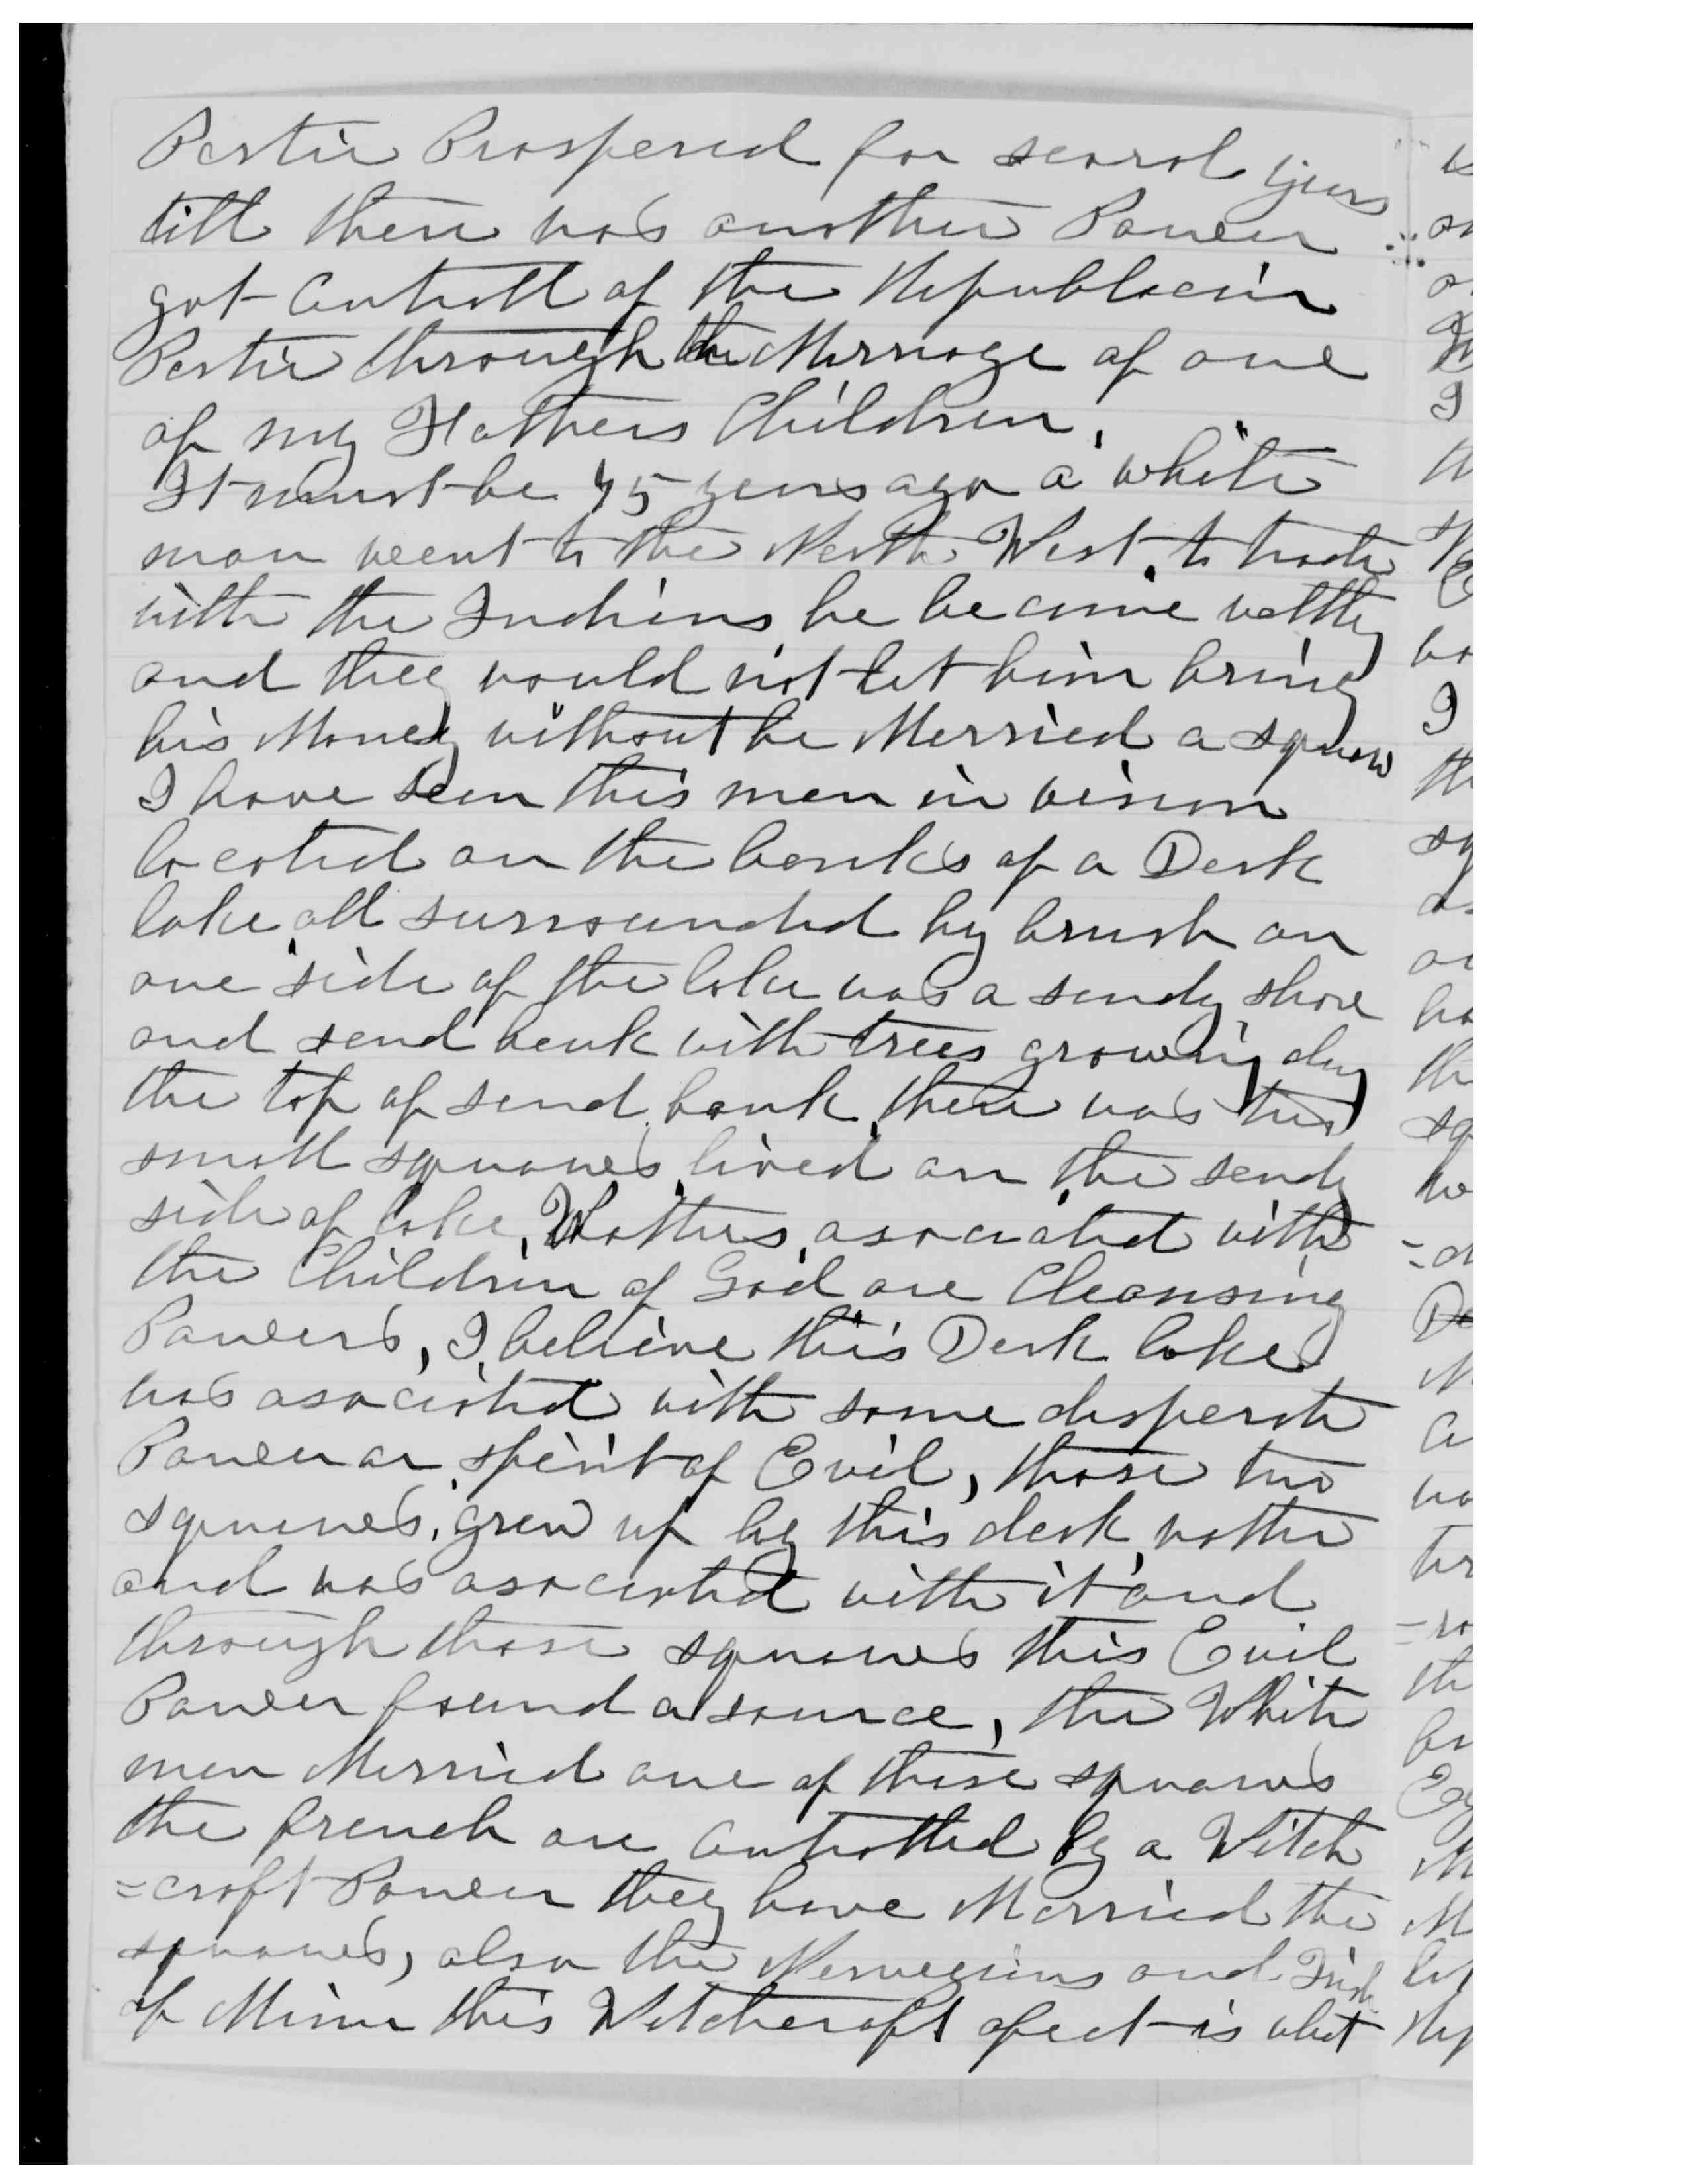 Partie Prospered for searol years
till there was another Power
got Controll of the Republacin
Partie through the Marriage of one
of my Fathers Children,
It must be 45 years ago a white
man went to the North West, to trade
with the Indians, he became welthy
and they would not let him bring
his Money without he Married a squaw
I have seen this man in vision
located on the banks of a Dark
lake, all surrounded by brush on
one side of the lake was a sandy shore
and sand bank with trees growing
the top of sand bank, there was two
small squawes, lived on the sandy
side of lake, Watters, asociated with
the Children of God are Cleansing
Powers, I believe this Dark lake
was asociated with some desperate
Power or spirit of Evil, those two
squawes, grew up by this dark watter
and was asociated with it and
through those squawes this Evil
Power found a source, the White
man Married one of these squaws
the french are Controlled by a Witch
=craft Power they have Married the
squawes, also the Norwegians and
of Minn this Witchcraft afect is what